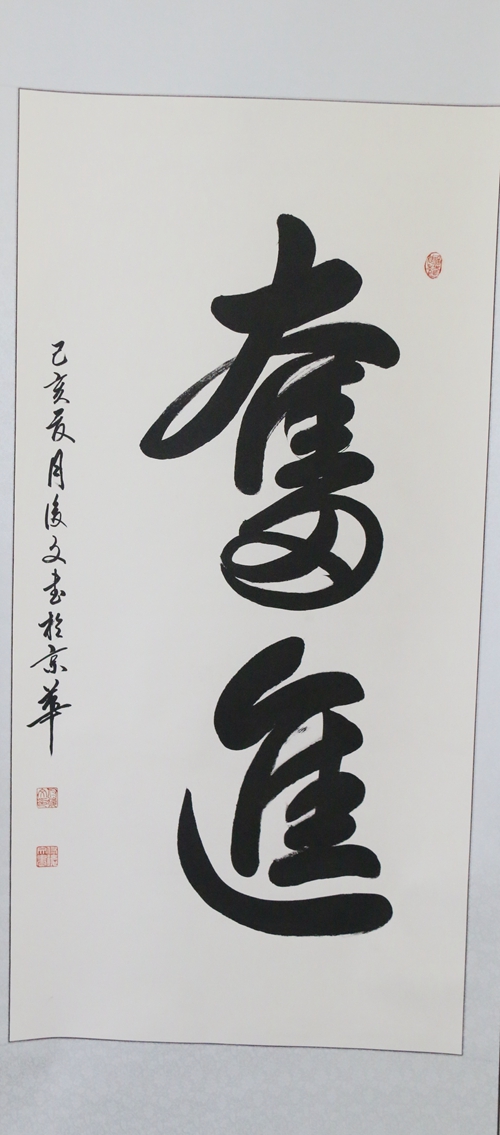 奮進
己亥夏月俊文书於京華